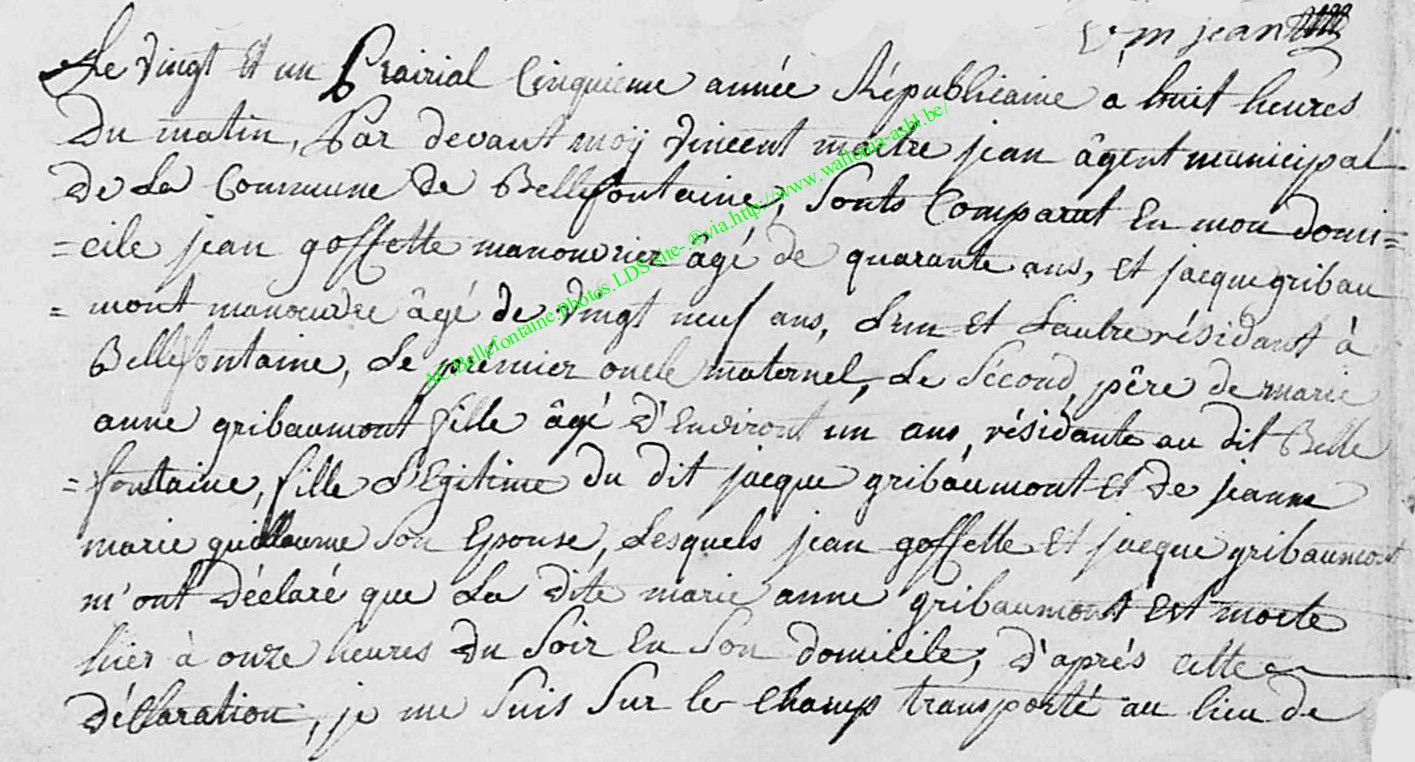 v m jean
Le vingt et un Prairial Cinquieme année Républicaine à huit heures
Du matin, Par devant moÿ Vincent maitre jean âgent municipal
De La Commune de Bellefontaine, Sonts Comparut En mon domi=
=cile jean goffette manouvrier âgé de quarante ans, et jacque gribau
=mont manœuvre âgé de vingt neuf ans, L'un et Lautre résidant à
Bellefontaine, Le prémier oncle maternel, Le Sécond, pêre de marie
anne gribaumont fille âgé D'Environt un ans, résidante au dit Belle
=fontaine, fille L'Egitime du dit jacque gribaumont et De jeanne
marie guillaume Son Epouse, Lesquels jean goffette et jacque gribaumont
m'ont Déclaré que La Dite marie anne gribaumont Est morte
hier à onze heures Du Soir En Son domicile, D'aprés cette
Déclaration, je me Suis Sur le Champ transporté au lieu de
AC.Bellefontaine.photos.LDS.site-@via.http://www.wallonia-asbl.be/